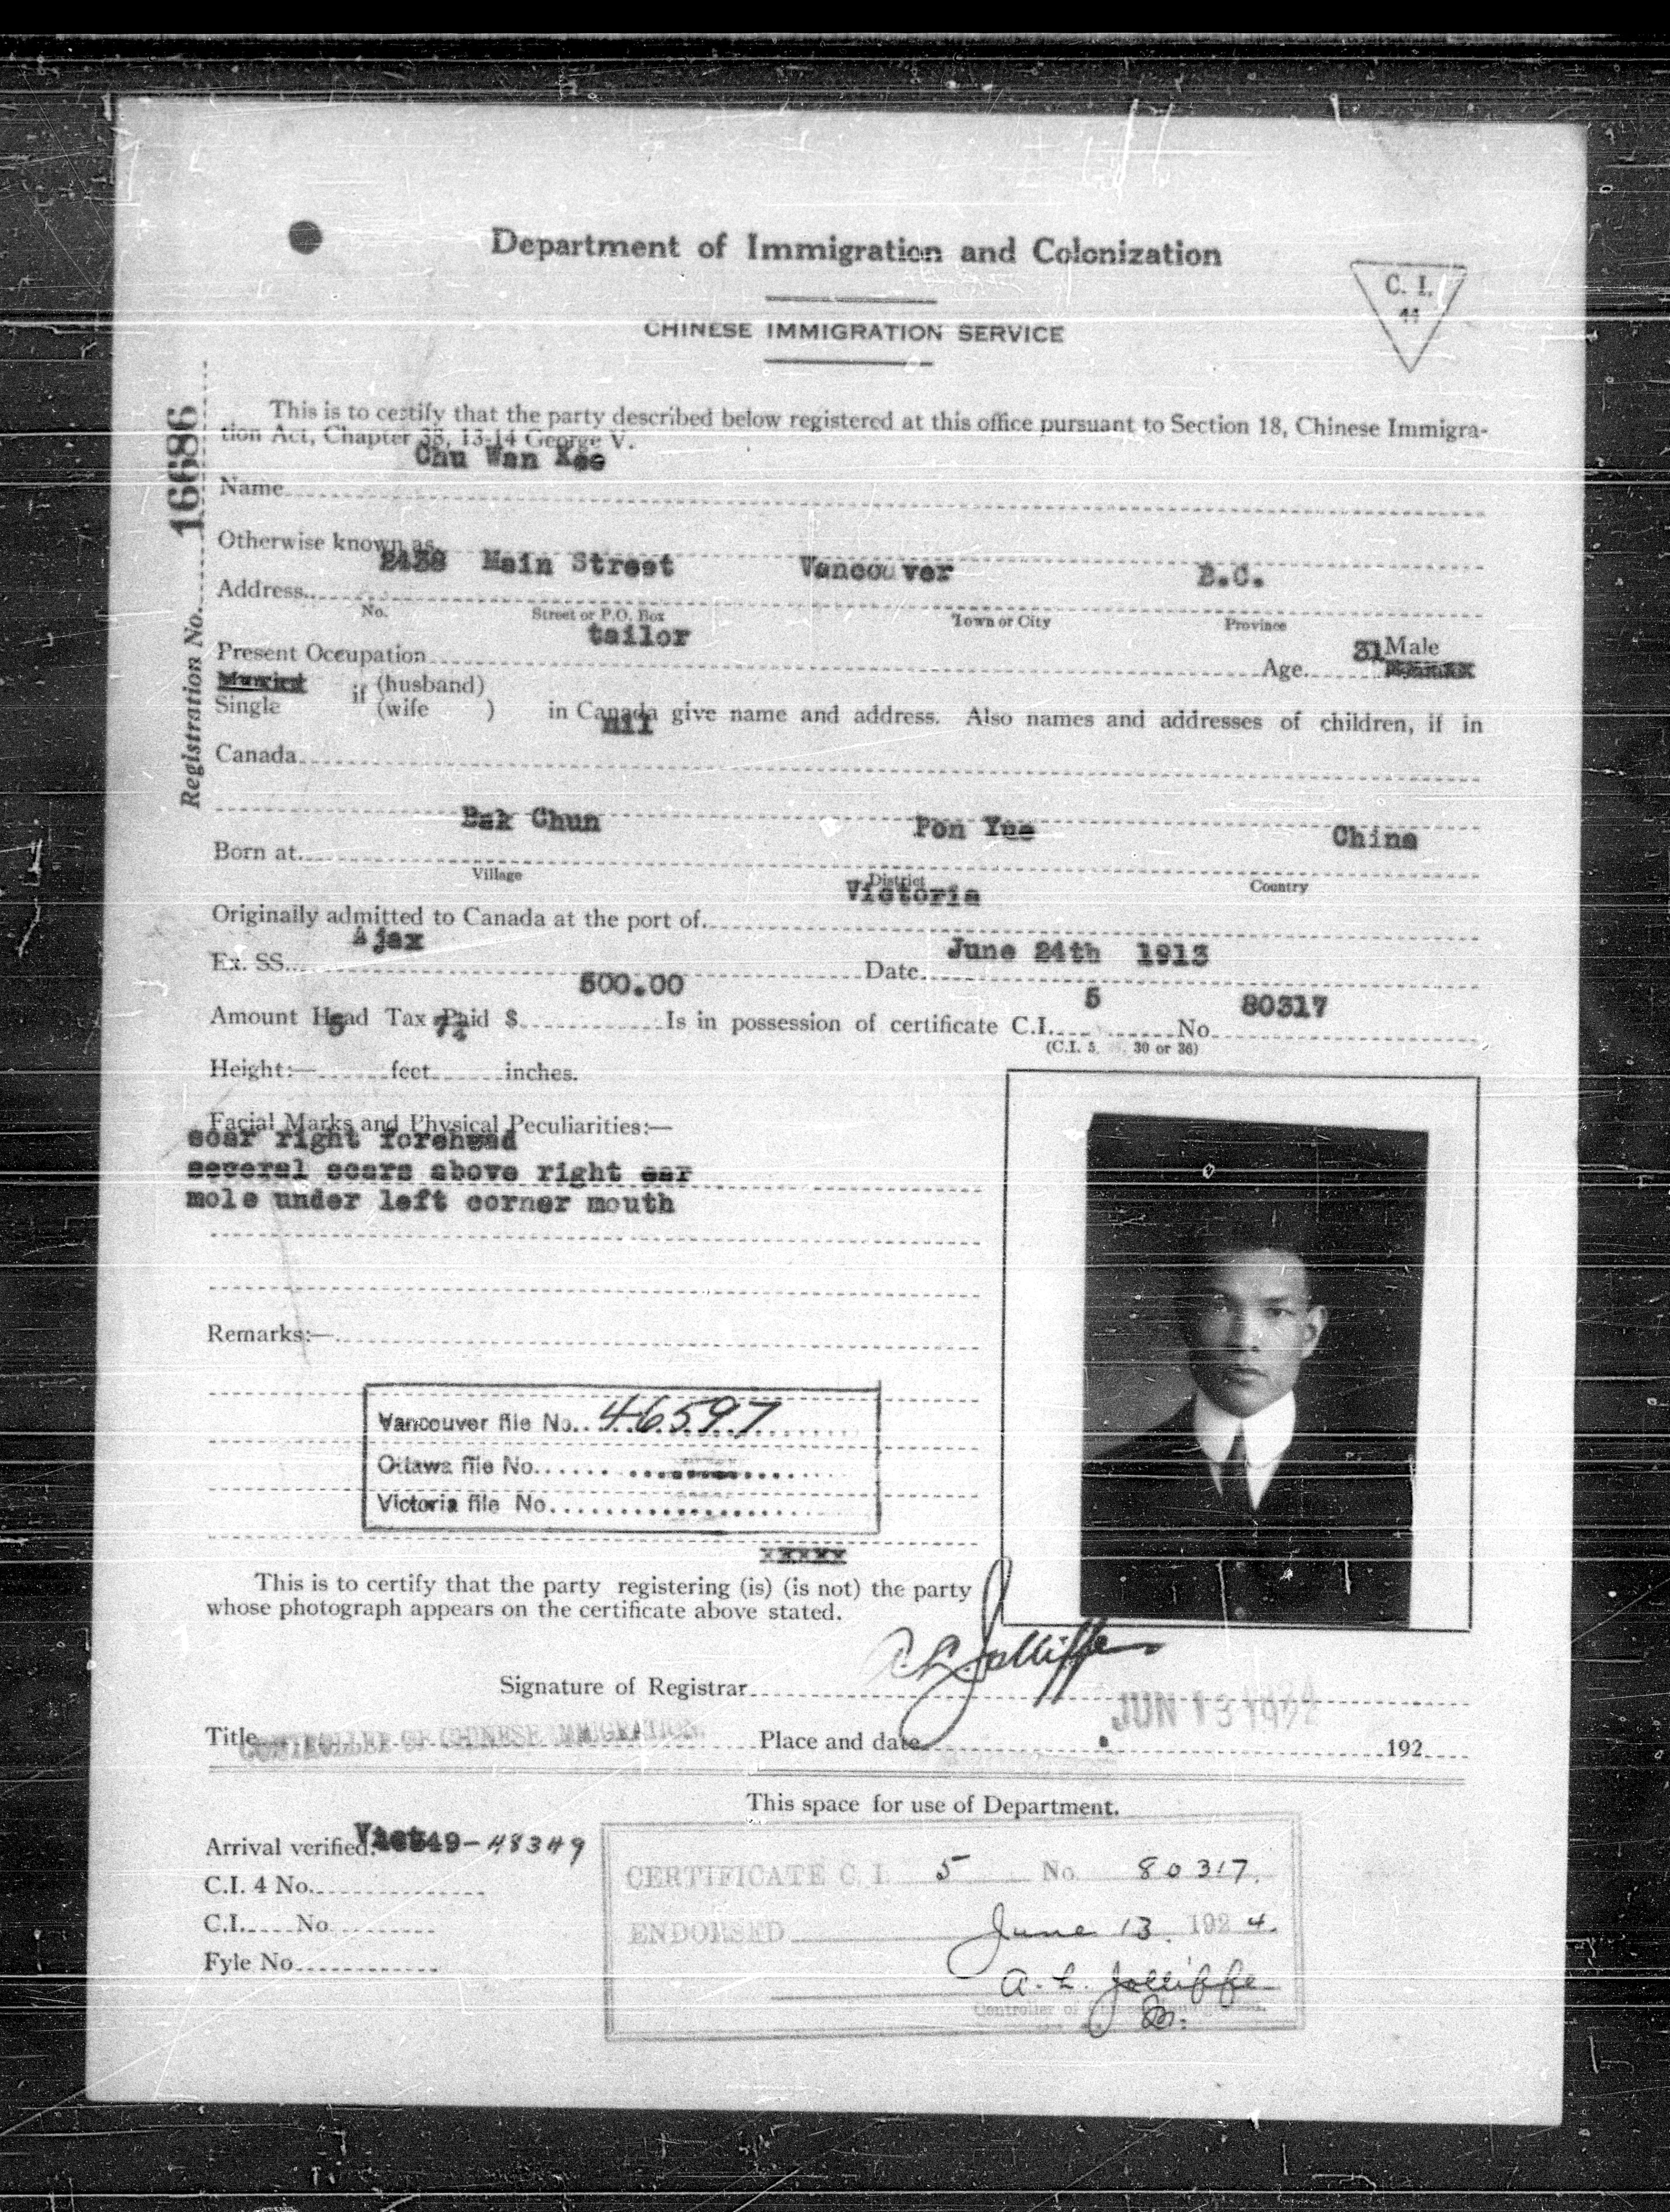 Department of Immigration and Colonization
CHINESE IMMIGRATION SERVICE
C. I.
44
Registration No. 16686
This is to certify that the party described below registered at this office pursuant to Section 18, Chinese Immigra-
tion Act, Chapter 38, 13-14 George V.
Chu Wan Kee
Name
Otherwise known as
2438 Main Street Vancouver B.C.
Address
No. Street or P.O. Box Town or City Province
tailor
Present Occupation Age 31 Male
Married if (husband)
Single (wife ) in Canada give name and address. Also names and addresses of children, if in
nil
Canada
Pak Chun Pon Yue China
Born at
Village District Country
Victoria
Originally admitted to Canada at the port of
Ajax June 24th 1913
Ex. SS. Date
500.00 5 80317
Amount Head Tax Paid $ Is in possession of certificate C.I. No.
(C.I. 5, 30 or 36)
5 7½
Height:— feet inches.
Facial Marks and Physical Peculiarities:—
scar right forehead
several scars above right ear
mole under left corner mouth
Remarks:—
Vancouver file No. 46597
Ottawa file No.
Victoria file No.
xxxxx
This is to certify that the party registering (is) (is not) the party
whose photograph appears on the certificate above stated.
A. L. Jolliffe
Signature of Registrar
JUN 13 1924
Title CONTROLLER OF CHINESE IMMIGRATION Place and date 192
This space for use of Department.
Arrival verified: 49-48349
C.I. 4 No.
C.I. No.
Fyle No.
CERTIFICATE C. I. 5 No. 80317.
ENDORSED June 13. 1924.
A. L. Jolliffe
Controller of Chinese Immigration.